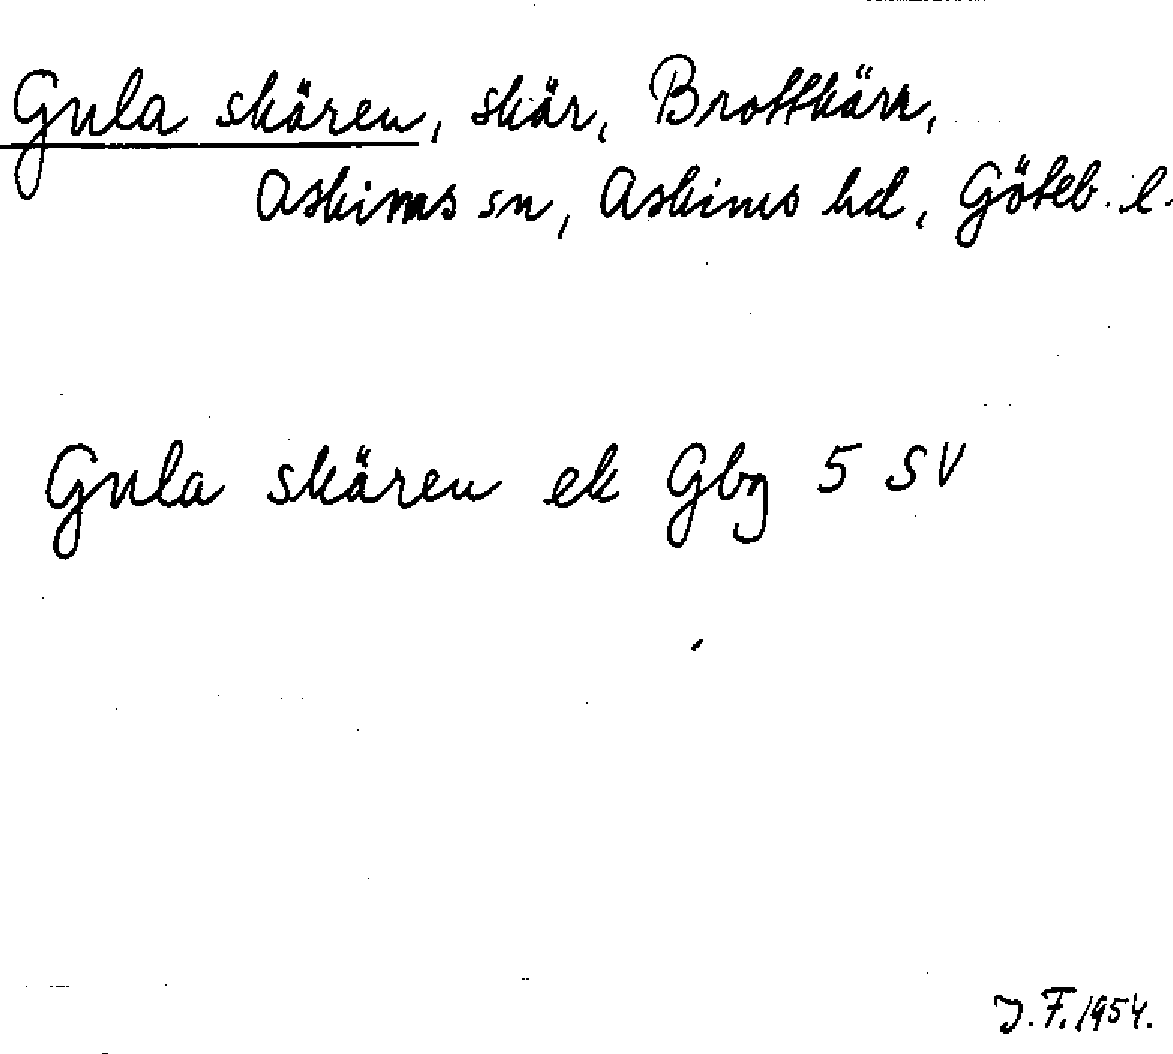 Gula skären, skär, Brottkärr,
Askims sn, Askims hd, Göteb. l.
Gula skären ek Gbg 5 SV
J.F. 1954.